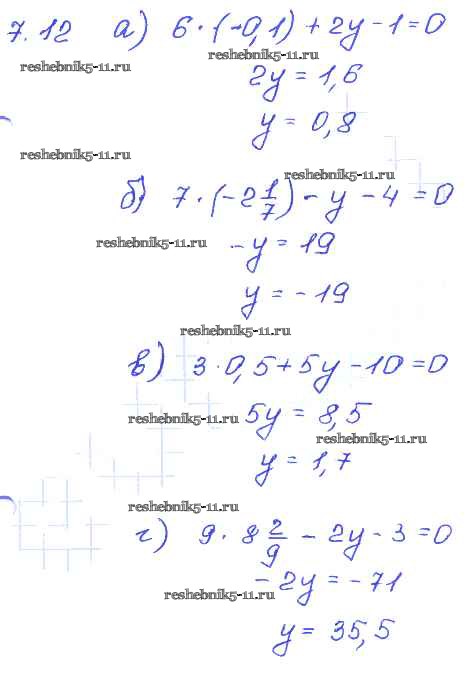 7.12 а) 6 · (-0,1) + 2y - 1 = 0
reshebnik5-11.ru
reshebnik5-11.ru
2y = 1,6
y = 0,8
reshebnik5-11.ru
reshebnik5-11.ru
б) 7 · (-2 1/7) - y - 4 = 0
reshebnik5-11.ru
-y = 19
y = -19
reshebnik5-11.ru
в) 3 · 0,5 + 5y - 10 = 0
reshebnik5-11.ru
5y = 8,5
reshebnik5-11.ru
y = 1,7
reshebnik5-11.ru
г) 9 · 8 2/9 - 2y - 3 = 0
-2y = -71
reshebnik5-11.ru
y = 35,5